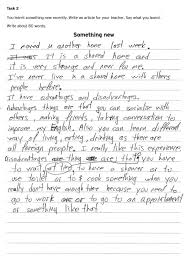 Task 2
You learnt something new recently. Write an article for your teacher. Say what you learnt.
Write about 80 words.
Something new
I moved a another home last week.
It is a shared home and
it is very strange and new for me.
I've never live in a shared home with others
people before.
It have advantages and disadvantages.
Advantages things are that you can socialise with
others, making friends, making conversation to
improve my English. Also you can learn different
way of living, eating, drinking as there are
all foreign people. I really like this experience.
Disadvantages are that you have
to wait, to have a shower or to
use toilet or to cook something when you
really don't have enough time because you need to
go to work or to go to an appointment
or something like that.